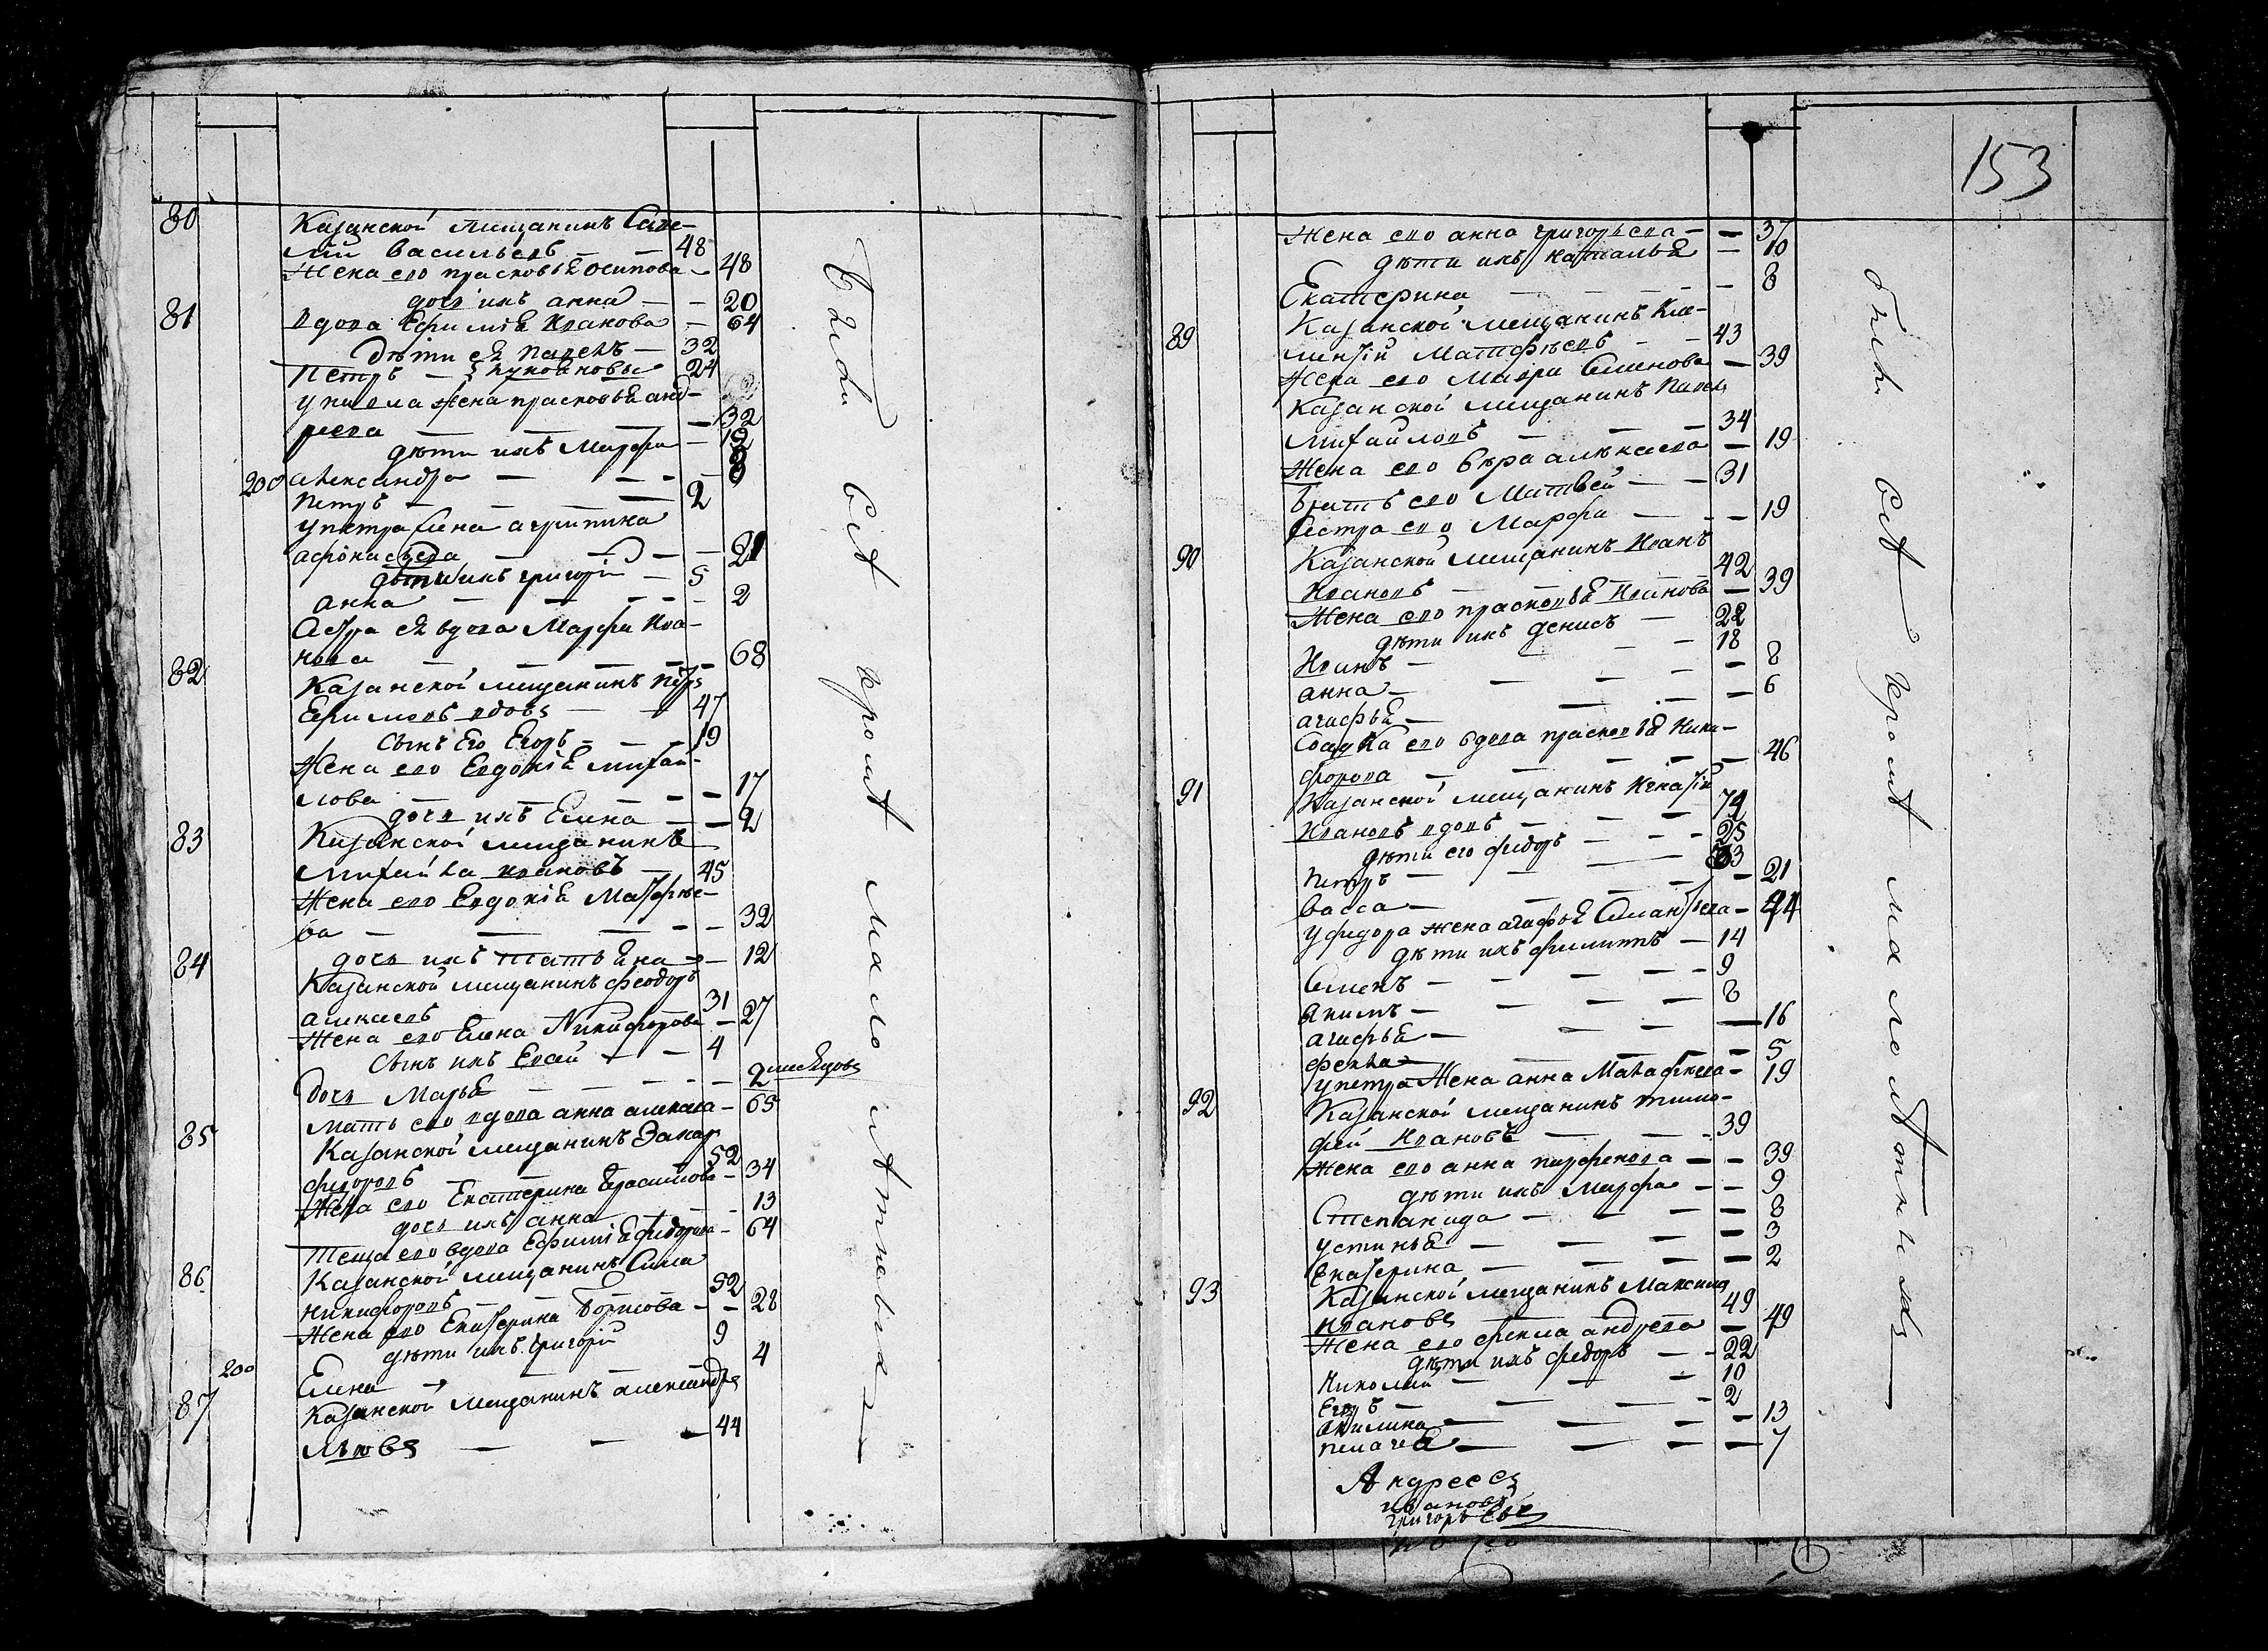 80 Казанской мещанинъ Саве-
лий Васильевъ — 48
Жена ево прасковья осипова — 48
дочь ихъ анна — 20
81 вдова Ефимия Иванова — 64
дѣти ея павелъ — 32
петръ — 24
у павла жена прасковья анд-
реева — 32
дѣти ихъ Марфа — 12
200 александра — 8
петръ — 2
у петра жена агрипина
афонасьева — 21
дѣти ихъ григорий — 5
анна — 2
Сестра ея вдова Марфа Ива-
нова — 68
82 Казанской мещанинъ петръ
Ефимовъ вдовъ — 47
Сынъ Его Егоръ — 19
Жена ево Евдокия михай-
лова — 17
дочь ихъ Елена — 2
83 Казанской мещанинъ
михайла ивановъ — 45
Жена ево Евдокия Матфѣе-
ва — 39
дочь ихъ татьяна — 12
84 Казанской мещанинъ феодоръ
алексѣевъ — 31
Жена ево Елена Никифорова — 27
Сынъ ихъ Евсей — 4
дочь Марья — 2 месяцовъ
мать ево вдова анна алексѣева — 65
85 Казанской мещанинъ Захаръ
федоровъ — 52
Жена ево Екатерина Герасимова — 34
дочь ихъ анна — 13
теща ево вдова Ефимия федорова — 64
86 Казанской мещанинъ Сила
никифоровъ — 52
Жена ево Екатерина Борисова — 28
дѣти ихъ григорий — 9
200 Елена — 4
87 Казанской мещанинъ александръ
львовъ — 44
Были Всѣ кромѣ малолѣтневыхъ
153
Жена ево анна григорьева — 37
дѣти ихъ наталья — 10
Екатерина — 8
89 Казанской мещанинъ Кле-
ментий Матфѣевъ — 43
Жена ево Мавра Семенова — 39
Казанской мещанинъ павелъ
михайловъ — 34
Жена ево Вѣра алексѣева — 19
братъ ево Матвей — 31
Сестра ево Марфа — 19
90 Казанской мещанинъ Иванъ
Ивановъ — 42
Жена ево прасковья Иванова — 39
дѣти ихъ денисъ — 22
Иванъ — 18
анна — 8
агафья — 6
ево вдова прасковья Ники-
форова — 46
91 Казанской мещанинъ Игнатий
Ивановъ вдовъ — 74
дѣти его федоръ
петръ — 33
васса — 21
у федора жена агафья — 44
дѣти ихъ филиппъ — 14
Семенъ — 9
якимъ — 8
агафья — 16
фекла — 5
у петра Жена анна Малафеева — 19
92 Казанской мещанинъ тимо-
фей Ивановъ — 39
Жена ево анна парфенова — 39
дѣти ихъ Марфа — 9
Степанида — 8
устинья — 3
Екатерина — 2
93 Казанской мещанинъ Максимъ
ивановъ — 49
Жена ево фекла андреева — 49
дѣти ихъ федоръ — 22
николай — 10
Егоръ — 2
акилина — 13
пелагея — 7
были Всѣ кромѣ малолѣтнихъ
Андреесъ
ивановъ
григорьевъ